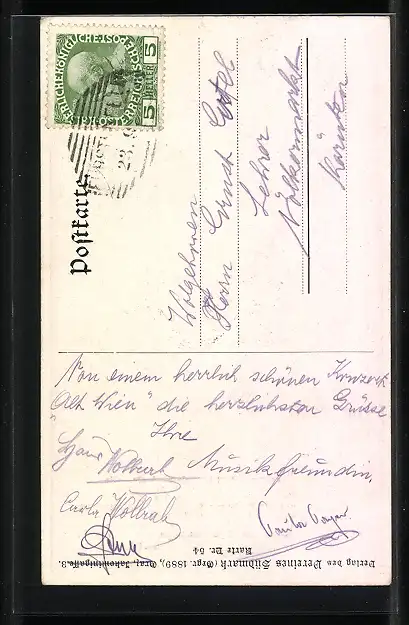 Postkarte
KAISERLICHE KÖNIGLICHE ÖSTERREICHISCHE POST
5 HELLER 5
23.
Wolgeboren
Herrn Ernst
Lehrer
Völkermarkt
Kärnten
Von einem herrlich schönen Konzert
"Alt Wien" die herzlichsten Grüsse
Ihre
Musikfreundin,
Hans
Carla
Verlag des Vereines Südmark (Gegr. 1889), Graz, Jakominigasse 3.
Karte Nr. 54